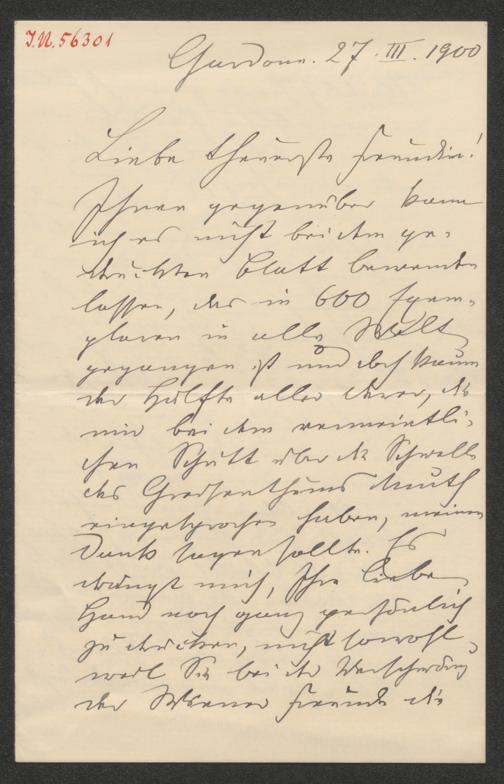 I.N. 56301
Gardone. 27. III. 1900
Liebe theuerste Freundin!
Ihnen gegenüber kann
ich es nicht bei dem ge-
druckten Blatt bewenden
lassen, das in 600 Exem-
plaren in alle Welt
gegangen ist und doch kaum
der Hälfte aller derer, die
mir bei dem vermeintli-
chen Schritt über die Schwelle
des Greisenthums Muth
eingesprochen haben, meinen
Dank sagen sollte. Es
drängt mich, Ihre liebe
Hand noch ganz persönlich
zu drücken, nicht sowohl
weil Sie bei der Verschwörung
der Wiener Freunde die